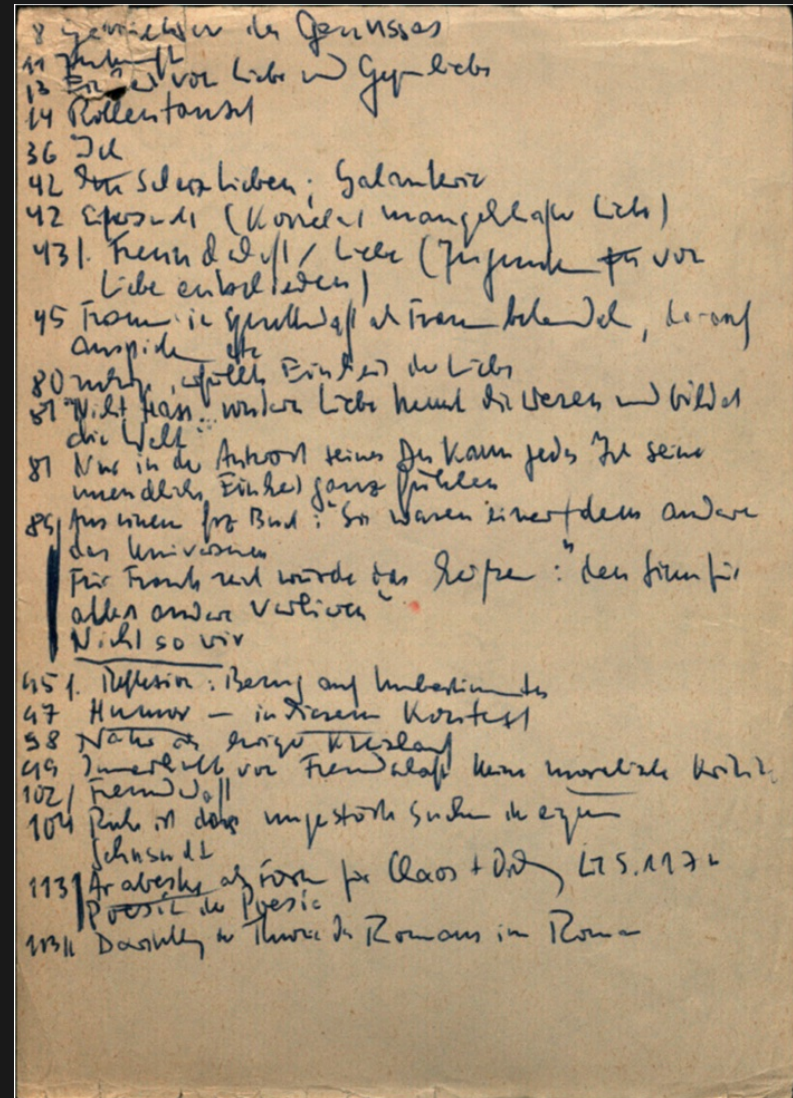 8 des Genusses
11 Zukunft
13 von Liebe und Gegenliebe
14 Rollentausch
36 Ich
42 Scherz Lieben; Galanterie
42 Eifersucht (Korrelat mangelhafter Liebe)
43f. Freundschaft / Liebe (Jugend vor
Liebe entschieden)
45 Frauen in Gesellschaft als Frauen behandeln, darauf
anspielen etc
80 Einheit der Liebe
81 "Nicht Hass ... sondern Liebe trennt die Wesen und bildet
die Welt"
81 Nur in der Antwort seines Du kann jedes Ich seine
unendliche Einheit ganz fühlen
89 Aus einem frz Buch: "Sie waren einer dem andern
das Universum
Für Frankreich würde das heißen: "den Sinn für
alles andere verlieren"
Nicht so wir
95f. Reflexion: Bezug auf Unbestimmtes
97 Humor – in diesem Kontext
98 Natur als ewiger Kreislauf
99 Innerhalb von Freundschaft keine moralische Kritik
102f Freundschaft
104 Ruhe ist dass ungestört Suchen in eigener
Sehnsucht
113f Arabeske als Form für Chaos + Ordnung S. 117
Poesie der Poesie
113ff Darstellung der Theorie des Romans im Roman